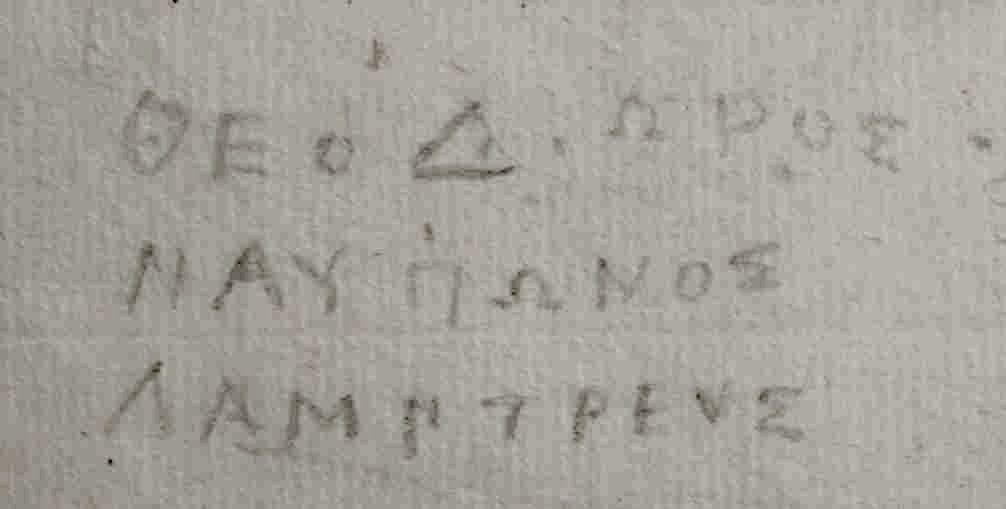 ΘΕΟΔΩΡΟΣ
ΝΑΥΠΩΝΟΣ
ΛΑΜΠΤΡΕΥΣ